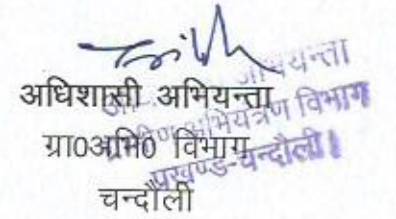 अधिशासी अभियन्ता
ग्रा0अभि0 विभाग
चन्दौली
अभियन्ता
ग्रामीण अभियंत्रण विभाग
प्रखण्ड-चन्दौली।